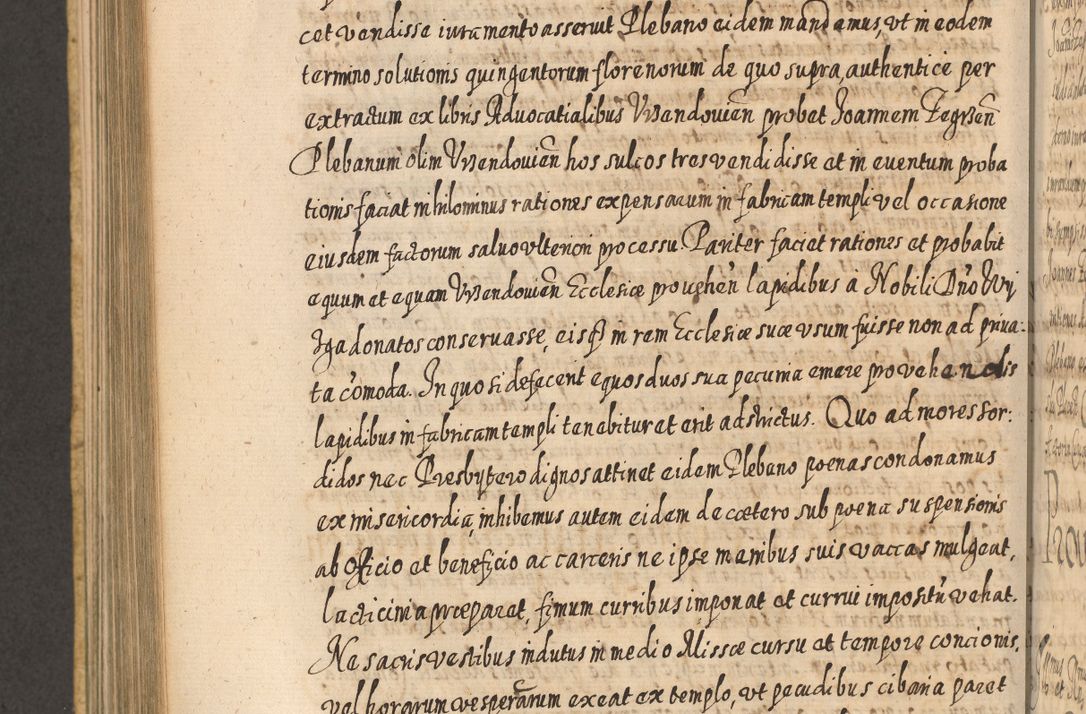 cet vendisse iuramento asserunt Plebano eidem mandamus, vt in eodem
termino solutionis quingentorum florenorum de quo supra, authentice per
extractum ex libris Advocatialibus Vrzendouien̄ probet Joannem
Plebanum olim Vrzendouien̄ hos sulcos tres vendidisse et in euentum proba
tionis faciat nihilominus rationes expensarum in fabricam templi vel occasione
eiusdem factorum saluo vlteriori processu. Pariter faciet rationes et probabit
equum et equam Vrzendouien̄ Ecclesiæ pro vehen̄ lapidibus à Nobili Dn̄o
donatos conseruasse, eisq3 in rem Ecclesiæ suæ vsum fuisse non ad priua:
ta cōmoda. In quo si defecerit equos duos sua pecunia emere pro vehendis
lapidibus in fabricam templi tenebitur et erit adstrictus. Quo ad mores sor:
didos nec Presbytero dignos attinet eidem Plebano poenas condonamus
ex misericordia, inhibemus autem eidem de cætero sub poena suspensionis
ab officio et beneficio ac carceris ne ipse manibus suis vaccas mulgeat,
lacticinia præparet, fimum curribus imponat et currui impositū vehat.
Ne sacris vestibus indutus in medio Missæ cursu et tempore concionis,
vel horarum vesperarum exeat ex templo, vt pecudibus cibaria paret